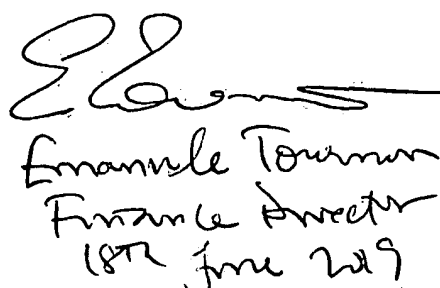 Emanuele Tournon
Finance Director
18TH June 2019